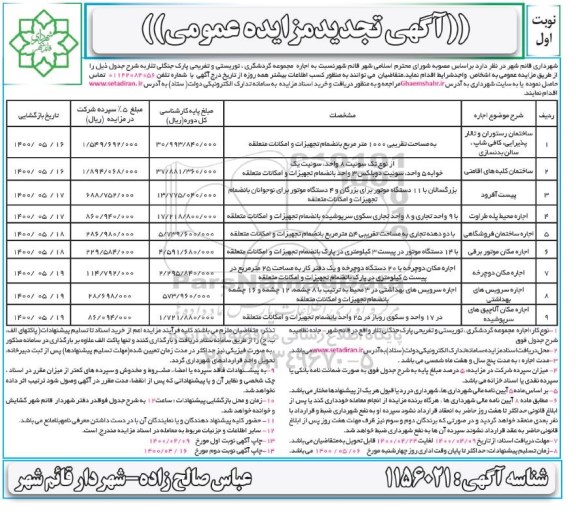 نوبت اول
((آگهی تجدیدمزایده عمومی))
شهرداری قائم شهر در نظر دارد براساس مصوبه شورای محترم اسلامی شهر قائم شهر نسبت به اجاره مجموعه گردشگری ، توریستی و تفریحی پارک جنگلی تلار به شرح جدول ذیل را
از طریق مزایده عمومی به اشخاص واجدشرایط اقدام نماید. متقاضیان می توانند به منظور کسب اطلاعات بیشتر همه روزه از تاریخ درج آگهی با شماره تلفن ۰۱۱۴۲۰۸۴۰۵۶ تماس
حاصل نموده یا به سایت شهرداری به آدرس Ghaemshahr.ir مراجعه و به منظور دریافت و خرید اسناد مزایده به سامانه تدارک الکترونیکی دولت( ستاد) به آدرس www.setadiran.ir
اقدام نمایند.
ردیف شرح موضوع اجاره مشخصات مبلغ پایه کارشناسی کل دوره(ریال) مبلغ ۵٪ سپرده شرکت در مزایده (ریال) تاریخ بازگشایی
۱ ساختمان رستوران و تالار پذیرایی، کافی شاپ ، سالن بدنسازی به مساحت تقریبی ۱۰۰۰ متر مربع بانضمام تجهیزات و امکانات متعلقه ۳۰/۹۹۳/۸۴۰/۰۰۰ ۱/۵۴۹/۶۹۲/۰۰۰ ۱۴۰۰/۰۵/۱۶
۲ ساختمان کلبه های اقامتی از نوع تک سوئیت ۸ واحد، سوئیت یک خوابه ۵ واحد، سوئیت دوبلکس ۳ واحد بانضمام تجهیزات و امکانات متعلقه ۳۷/۸۸۱/۳۶۰/۰۰۰ ۱/۸۹۴/۰۶۸/۰۰۰ ۱۴۰۰/۰۵/۱۶
۳ پیست آفرود بزرگسالان با ۱۱ دستگاه موتور برای بزرگان و ۴ دستگاه موتور برای نوجوانان بانضمام تجهیزات و امکانات متعلقه ۱۳/۷۷۵/۰۴۰/۰۰۰ ۶۸۸/۷۵۲/۰۰۰ ۱۴۰۰/۰۵/۱۷
۴ اجاره محیط پله طراوت با ۹ واحد تجاری و ۸ واحد تجاری سکوی سرپوشیده بانضمام تجهیزات و امکانات متعلقه ۱۷/۲۱۸/۸۰۰/۰۰۰ ۸۶۰/۹۴۰/۰۰۰ ۱۴۰۰/۰۵/۱۷
۵ اجاره ساختمان فروشگاهی با دو دهنه تجاری به مساحت تقریبی ۵۴ مترمربع بانضمام تجهیزات و امکانات متعلقه ۵/۷۳۹/۶۰۰/۰۰۰ ۲۸۶/۹۸۰/۰۰۰ ۱۴۰۰/۰۵/۱۸
۶ اجاره مکان موتور برقی با ۱۴ دستگاه موتور در پیست ۳ کیلومتری در پارک بانضمام تجهیزات و امکانات متعلقه ۴/۵۹۱/۶۸۰/۰۰۰ ۲۲۹/۵۸۴/۰۰۰ ۱۴۰۰/۰۵/۱۸
۷ اجاره مکان دوچرخه اجاره مکان دوچرخه با ۲۰ دستگاه دوچرخه و یک دفتر کار به مساحت ۲۵ مترمربع در پیست ۵ کیلومتری در پارک بانضمام تجهیزات و امکانات متعلقه ۲/۲۹۵/۸۴۰/۰۰۰ ۱۱۴/۷۹۲/۰۰۰ ۱۴۰۰/۰۵/۱۹
۸ اجاره سرویس های بهداشتی اجاره سرویس های بهداشتی در ۳ محیط به ترتیب با ۸ چشمه، ۱۲ چشمه و ۱۶ چشمه بانضمام تجهیزات و امکانات متعلقه ۵۷۳/۹۶۰/۰۰۰ ۲۸/۶۹۸/۰۰۰ ۱۴۰۰/۰۵/۱۹
۹ اجاره مکان آلاچیق های سرپوشیده در ۱۷ واحد و سکوی روباز در ۲۵ واحد بانضمام تجهیزات و امکانات متعلقه ۱/۷۲۱/۸۸۰/۰۰۰ ۸۶/۰۹۴/۰۰۰ ۱۴۰۰/۰۵/۱۹
۱-نوع کار: اجاره مجموعه گردشگری ، توریستی و تفریحی پارک جنگلی تلار واقع در قائم شهر - جاده نظامیه به
شرح جدول فوق
۲-محل دریافت اسناد مزایده: سامانه تدارک الکترونیکی دولت( ستاد ) به آدرس www.setadiran.ir
۳-مدت اجاره : به مدت پنج سال و هفت ماه شمسی می باشد.
۴- میزان سپرده شرکت در مزایده: ۵ درصد مبلغ پایه به شرح جدول فوق به صورت ضمانت نامه بانکی یا
سپرده نقدی یا اسناد خزانه می باشد.
۵-بر اساس ماده ۵ آیین نامه مالی شهرداری ها، شهرداری در رد یا قبول هر یک از پیشنهادها مختار می باشد.
۷-مهلت دریافت اسناد: از تاریخ ۱۴۰۰/۰۴/۰۹ لغایت ۱۴۰۰/۰۴/۲۴ قابل تحویل به متقاضیان می باشد.
۸-زمان تسلیم پیشنهادات: حداکثر تا پایان وقت اداری روز چهارشنبه مورخ ۱۴۰۰/۰۵/۰۶ می باشد.
۱۱- حضور کلیه پیشنهاد دهندگان و یا نمایندگان آن با در دست داشتن معرفی نامه بلامانع می باشد.
۱۲- سایر اطلاعات و جزئیات مربوط به معامله در اسناد مزایده مندرج است.
۱۳-چاپ آگهی نوبت اول مورخ ۱۴۰۰/۰۴/۰۹
۱۴-چاپ آگهی نوبت دوم مورخ ۱۴۰۰/۰۴/۱۶
شناسه آگهی: ۱۱۵۶۰۲۱ عباس صالح زاده-شهردار قائم شهر